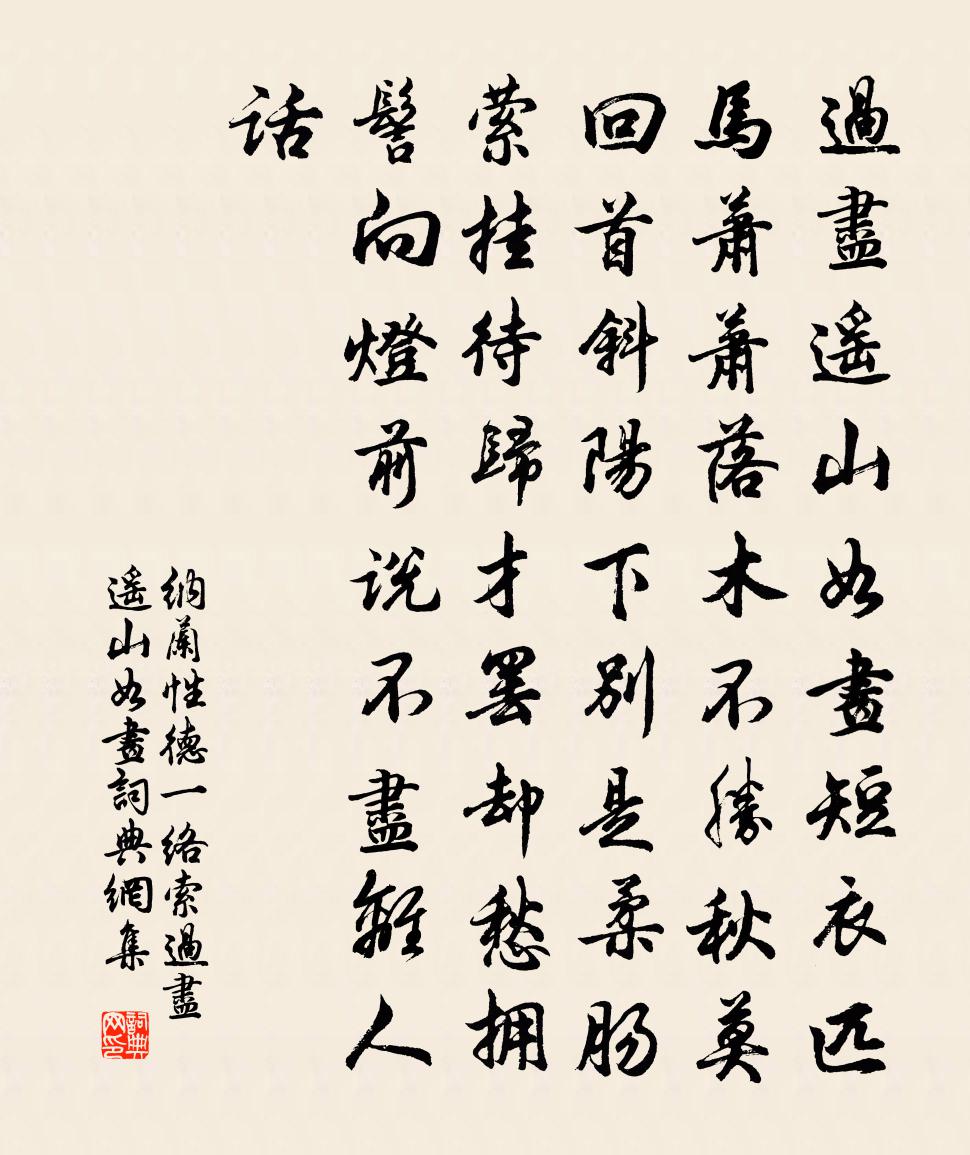 過盡遥山如畫短衣匹
馬蕭蕭落木不勝秋莫
回首斜陽下別是柔腸
萦挂待歸才罷却愁拥
髻向燈前説不盡離人
話
納蘭性德一絡索過盡
遥山如畫詞典網集
詞典网印